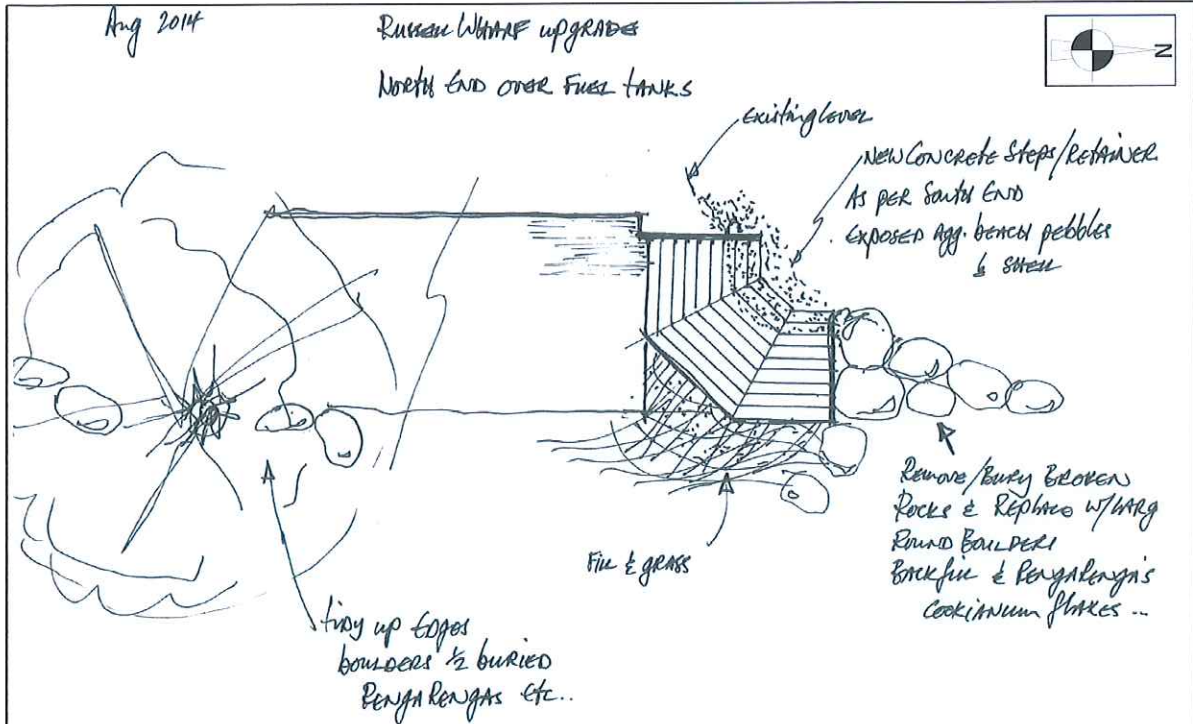 Aug 2014
Russell Wharf upgrade
North End over Fuel tanks
N
Existing level
New Concrete Steps/Retainer
As per South End
Exposed Agg. beach pebbles
& shell
Remove/Bury Broken
Rocks & Replace w/Larg
Round Boulders
Backfill & Rengarenga's
Cookianum flaxes ...
Fill & grass
tidy up Edges
boulders ½ buried
Rengarengas etc..